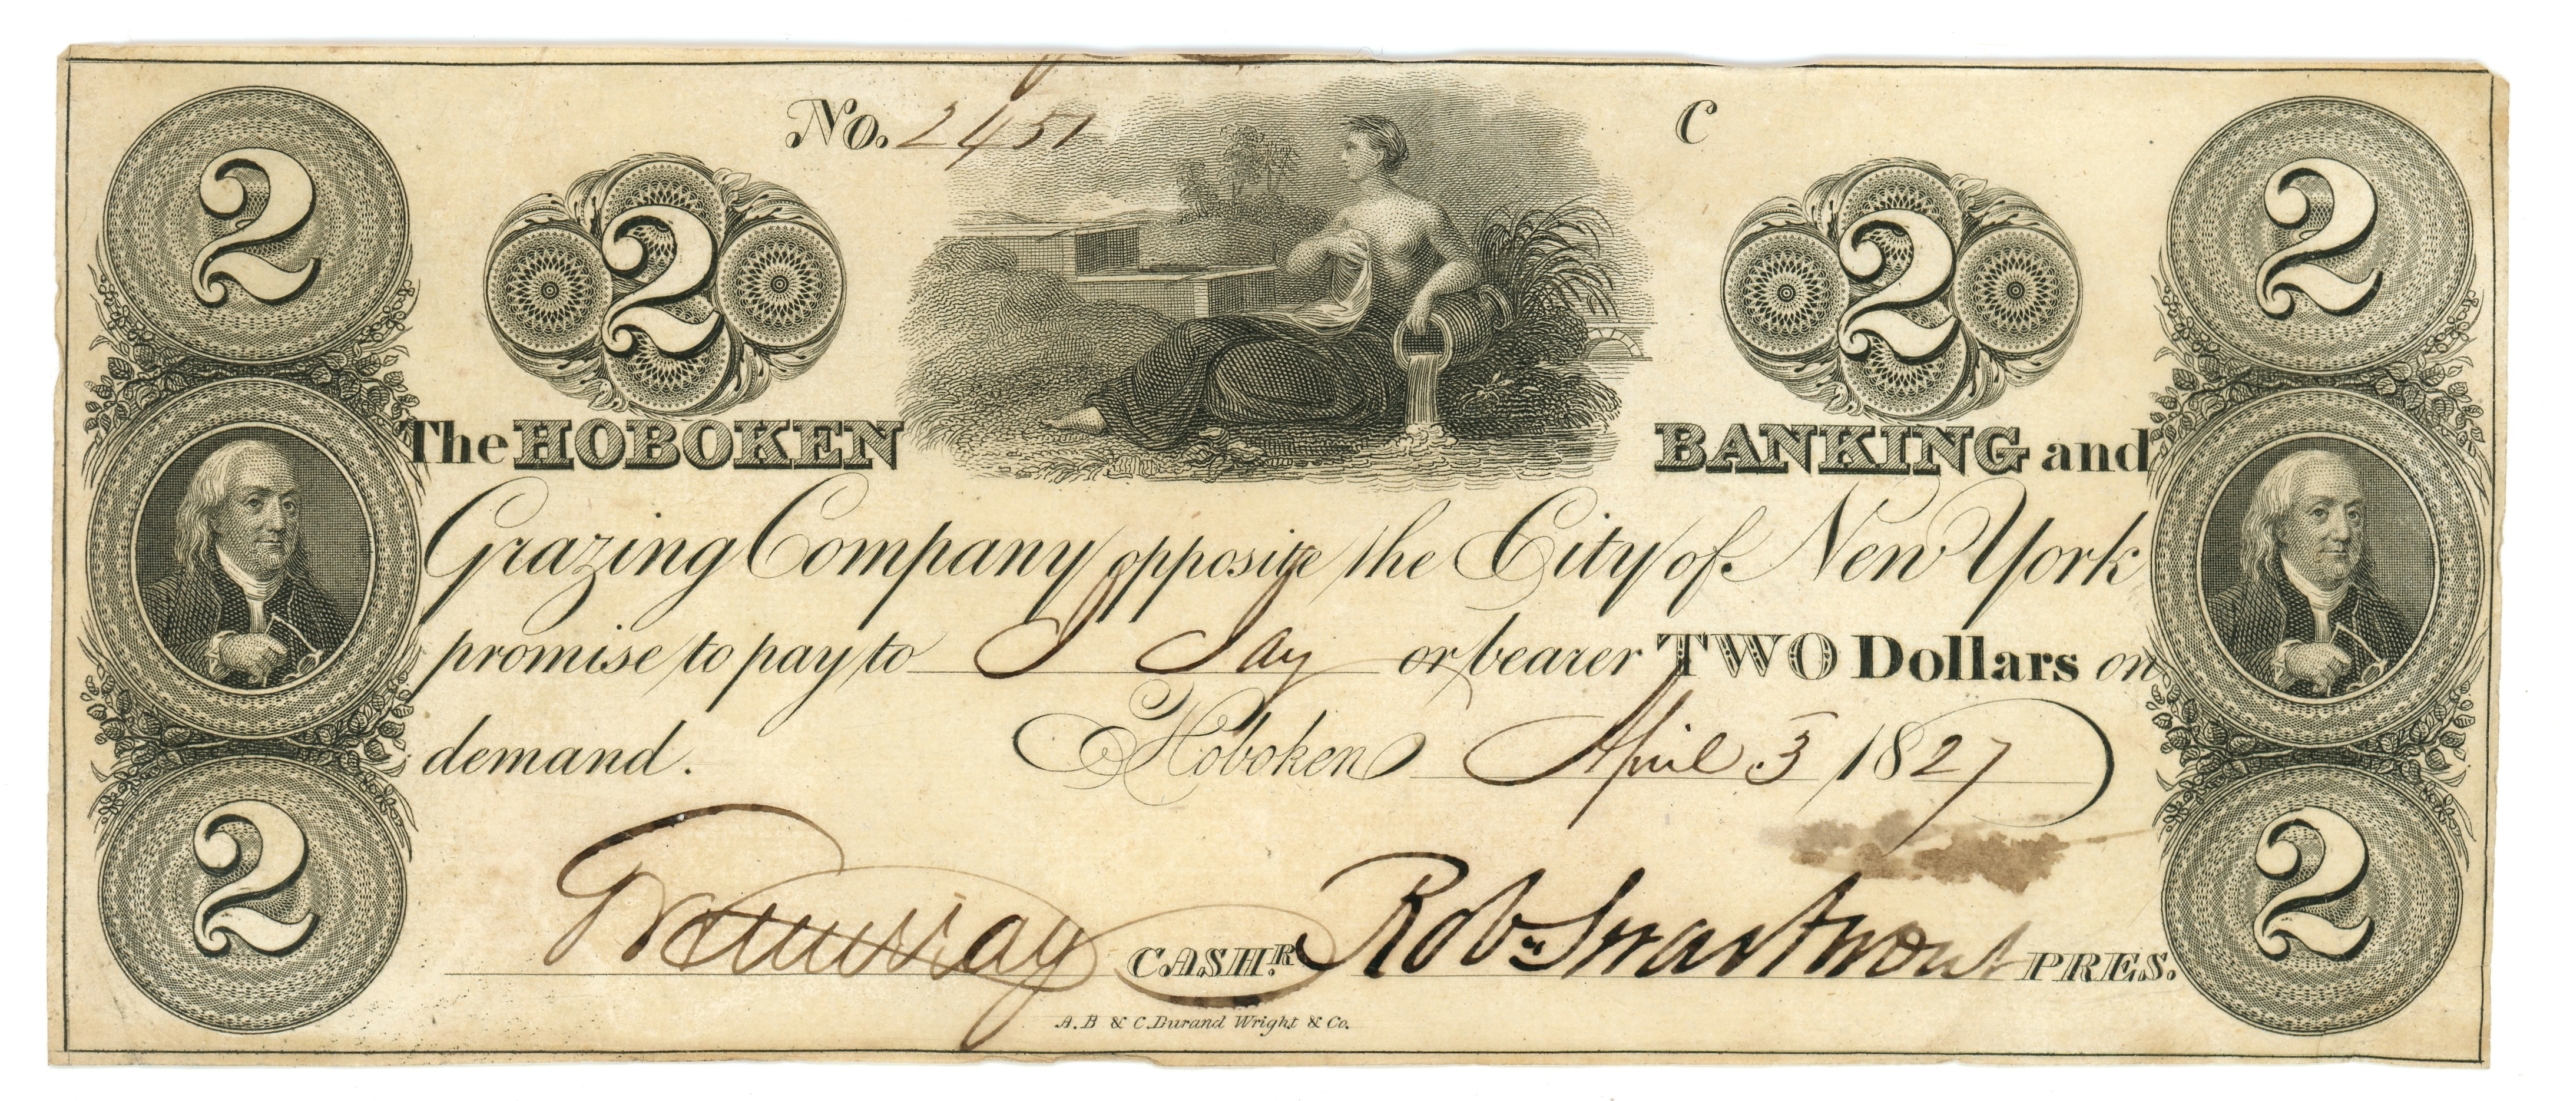 No. 2451 C
2 2 2 2
The HOBOKEN BANKING and
Grazing Company opposite the City of New York
promise to pay to J Jay or bearer TWO Dollars on
demand. Hoboken April 3 1827
2 2
CASHR. Robt Swartwout PRES.
A.B & C.Durand Wright & Co.